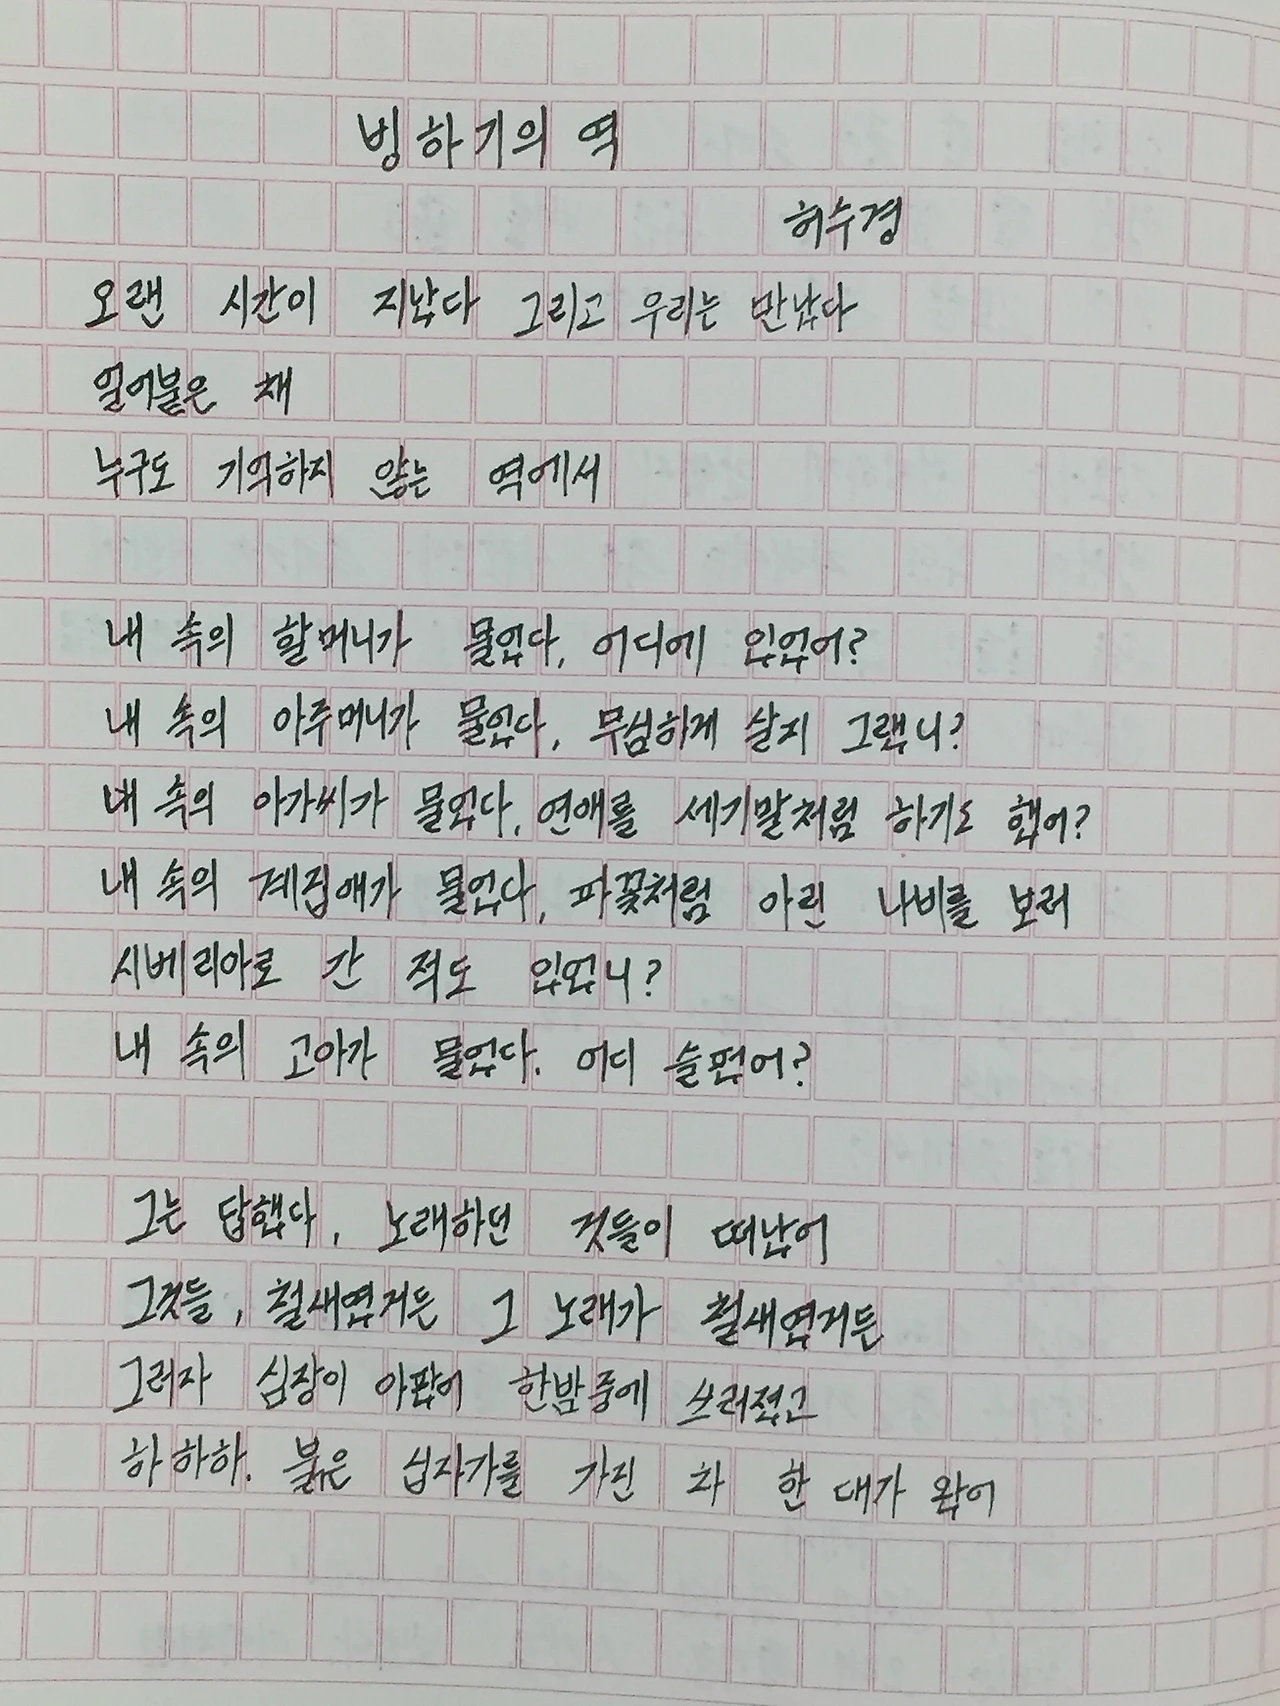 빙하기의 역
허수경
오랜 시간이 지났다 그리고 우리는 만났다
얼어붙은 채
누구도 기억하지 않는 역에서
내 속의 할머니가 물었다, 어디에 있었어?
내 속의 아주머니가 물었다, 무심하게 살지 그랬니?
내 속의 아가씨가 물었다, 연애를 세기말처럼 하기도 했어?
내 속의 계집애가 물었다, 파꽃처럼 아린 나비를 보러
시베리아로 간 적도 있었니?
내 속의 고아가 물었다. 어디 슬펐어?
그는 답했다, 노래하던 것들이 떠났어
그것들, 철새였거든 그 노래가 철새였거든
그러자 심장이 아팠어 한밤중에 쓰러졌고
하하하. 붉은 십자가를 가진 차 한 대가 왔어